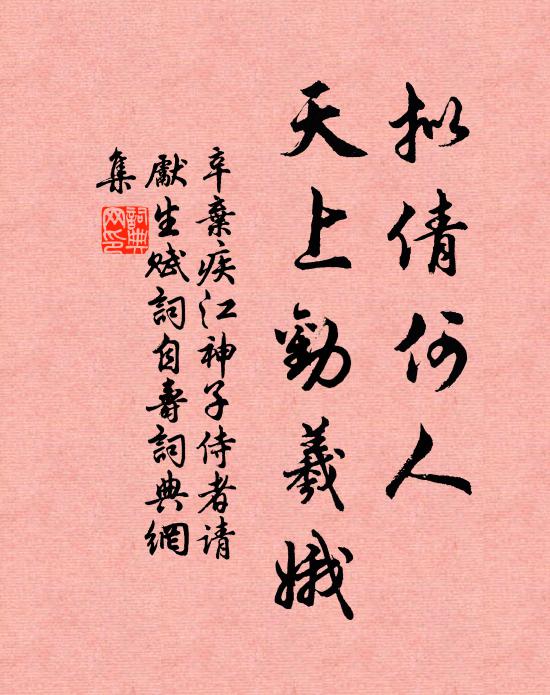 拟倩何人
天上劝羲娥
辛棄疾江神子侍者请
先生赋詞自壽詞典網
集
詞典网印